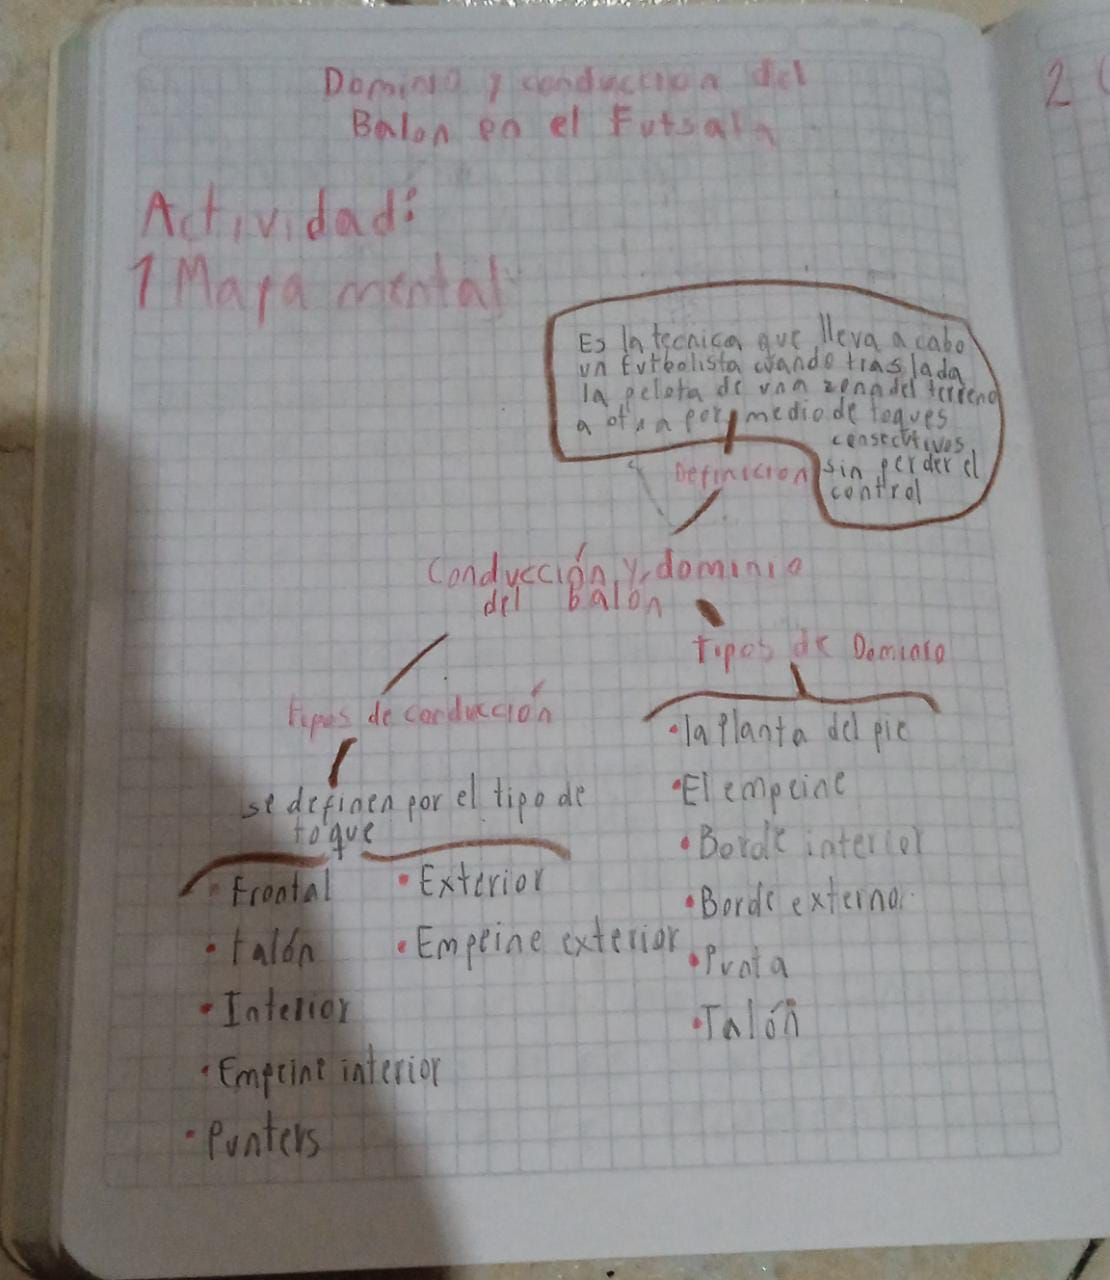 Dominio y conduccion del
Balon en el Futsala
Actividad:
1 Mapa mental
Es la tecnica que lleva a cabo
un futbolista cuando traslada
la pelota de una zona del terreno
a otra por medio de toques
consecutivos
sin perder el
control
Definicion
Conducción y dominio
del balón
tipos de Dominio
• la Planta del pie
• El empeine
• Borde interior
• Borde externo.
• Punta
• Talón
tipos de conducción
se definen por el tipo de
toque
• Frontal
• talón
• Interior
• Empeine interior
• Punters
• Exterior
• Empeine exterior
2